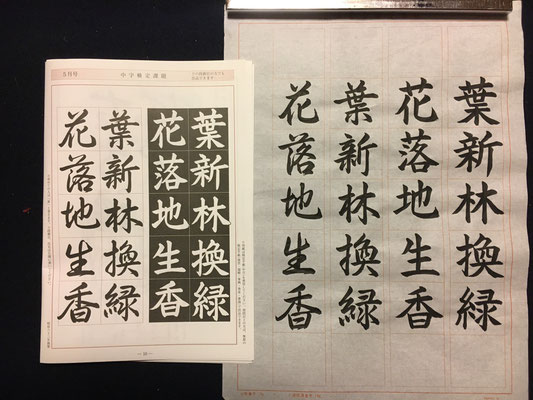 5月号
中字検定課題
葉新林換緑
花落地生香
葉新林換緑
花落地生香
葉新林換緑
花落地生香
葉新林換緑
花落地生香